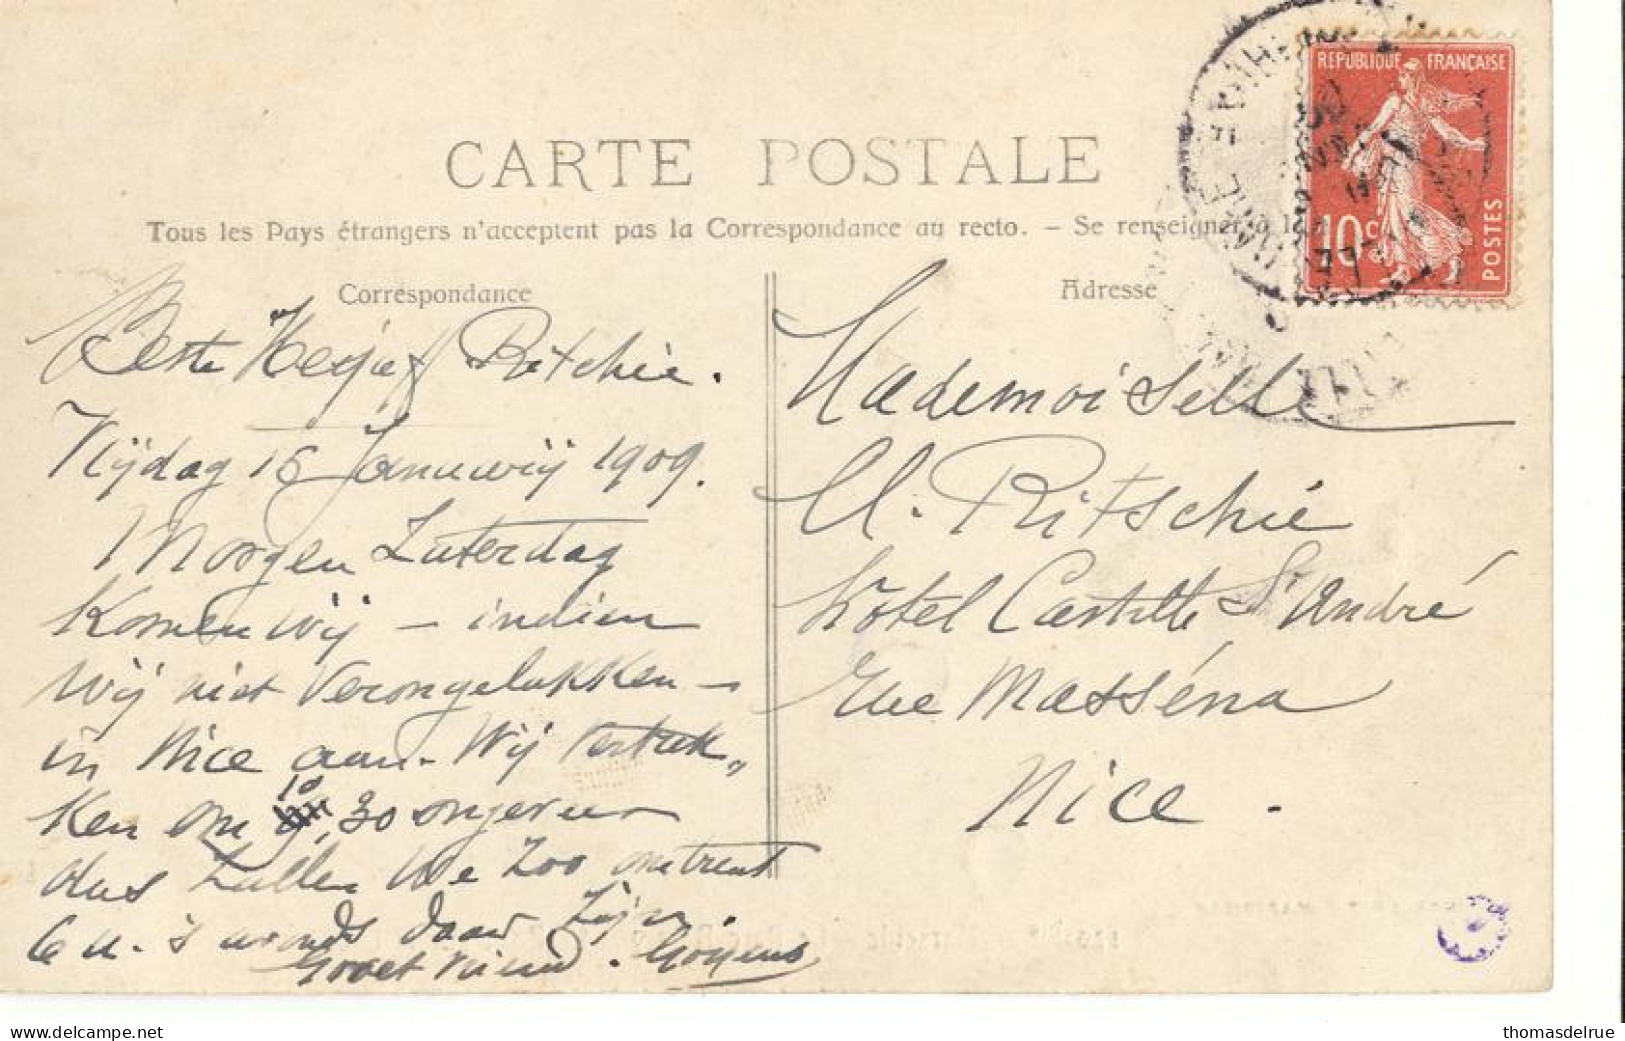 CARTE POSTALE
Tous les Pays étrangers n'acceptent pas la Correspondance au recto. - Se renseigner à la
Correspondance
Adresse
REPUBLIQUE FRANÇAISE
10 c
POSTES
Beste Ritchie.
Vrijdag 15 Januwrij 1909.
Morgen Zaterdag
Komen wij - indien
wij niet verongelukken -
in Nice aan. Wij vertrek„
ken om 10,30 ongeveer
dus zullen we zoo omtrent
6 u. 's avonds daar zijn.
Groet vriend.
Mademoiselle
M. Ritschie
Hotel Castille St André
Rue Masséna
Nice.
thomasdelrue